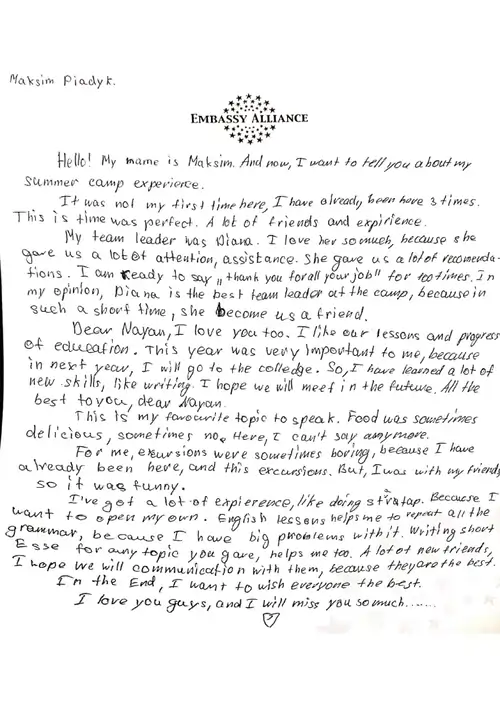 Maksim Piadyk.
EMBASSY ALLIANCE
Hello! My name is Maksim. And now, I want to tell you about my
summer camp experience.
It was not my first time here, I have already been here 3 times.
This is time was perfect. A lot of friends and expirience.
My team leader was Diana. I love her so much, because she
gave us a lot of attention, assistance. She gave us a lot of recomenda-
tions. I am ready to say „thank you for all your job" for 100 times. In
my opinion, Diana is the best team leader at the camp, because in
such a short time, she become us a friend.
Dear Nayan, I love you too. I like our lessons and progress
of education. This year was very important to me, because
in next year, I will go to the colledge. So, I have learned a lot of
new skills, like writing. I hope we will meet in the future. All the
best to you, dear Nayan.
This is my favourite topic to speak. Food was sometimes
delicious, sometimes no. Here, I can't say anymore.
For me, exursions were sometimes boring, because I have
already been here, and this excursions. But, I was with my friends,
so it was funny.
I've got a lot of expierence, like doing stratap. Because I
want to open my own. English lessons helps me to repeat all the
grammar, because I have big problems with it. Writing short
Esse for any topic you gave, helps me too. A lot of new friends,
I hope we will communication with them, because they are the best.
In the End, I want to wish everyone the best.
I love you guys, and I will miss you so much.......